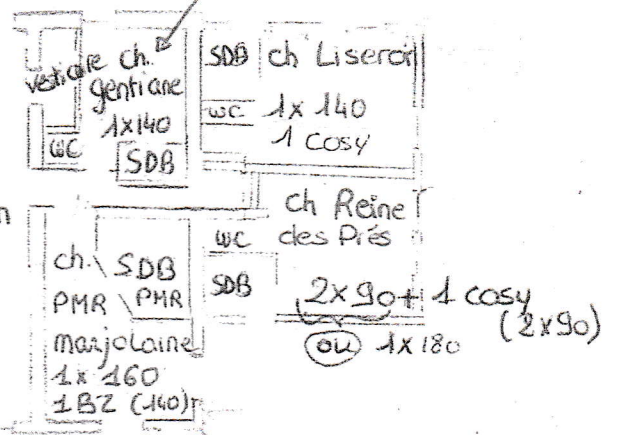 vestiaire
ch.
gentiane
1x140
WC
SDB
SDB
ch Liseron
WC
1x 140
1 cosy
ch Reine
des Prés
WC
SDB
2x90 + 1 cosy
(2x90)
ou 1x180
ch.
PMR
SDB
PMR
marjolaine
1x 160
1BZ (140)